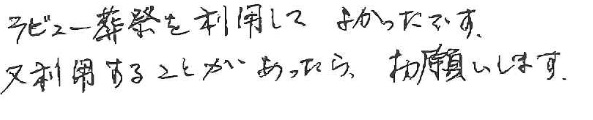 ラビュー葬祭を利用して よかったです.
又利用することがあったら、お願いします.